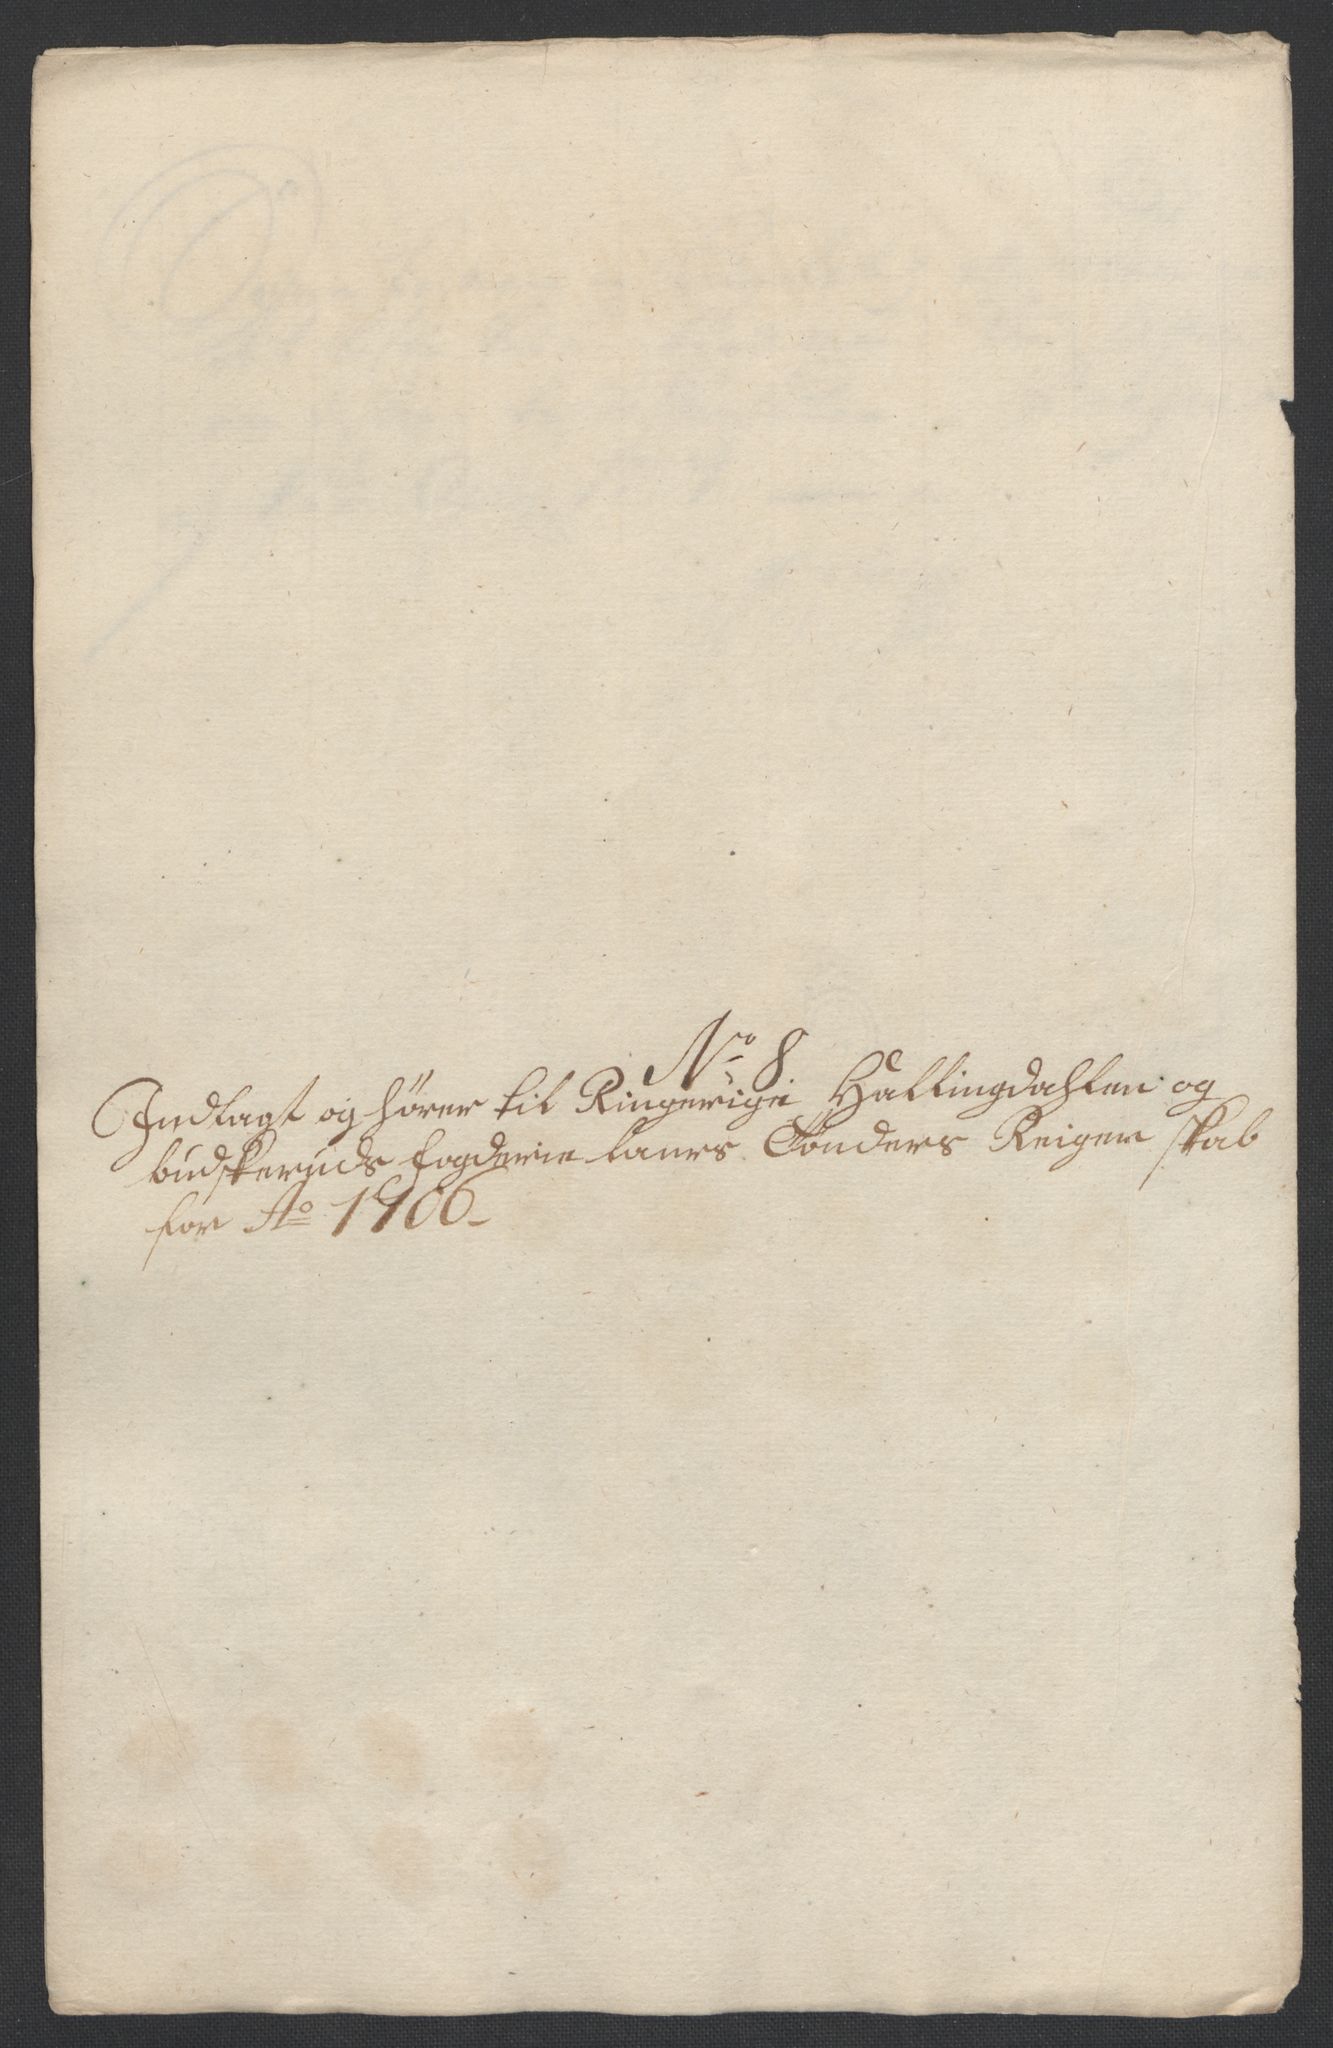 No 8
Indlagt og hører til Ringerige Hallingdahlen og
budskeruds fogderie laurs Tønders Reigen skab
for Ao 1706